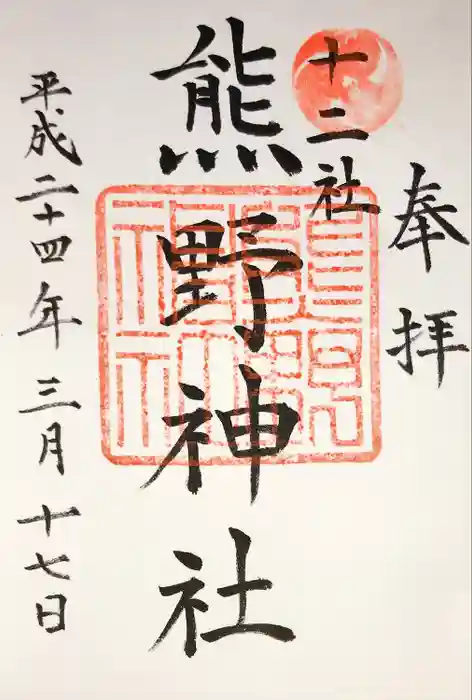 奉拝
十二社
熊野神社
平成二十四年三月十七日